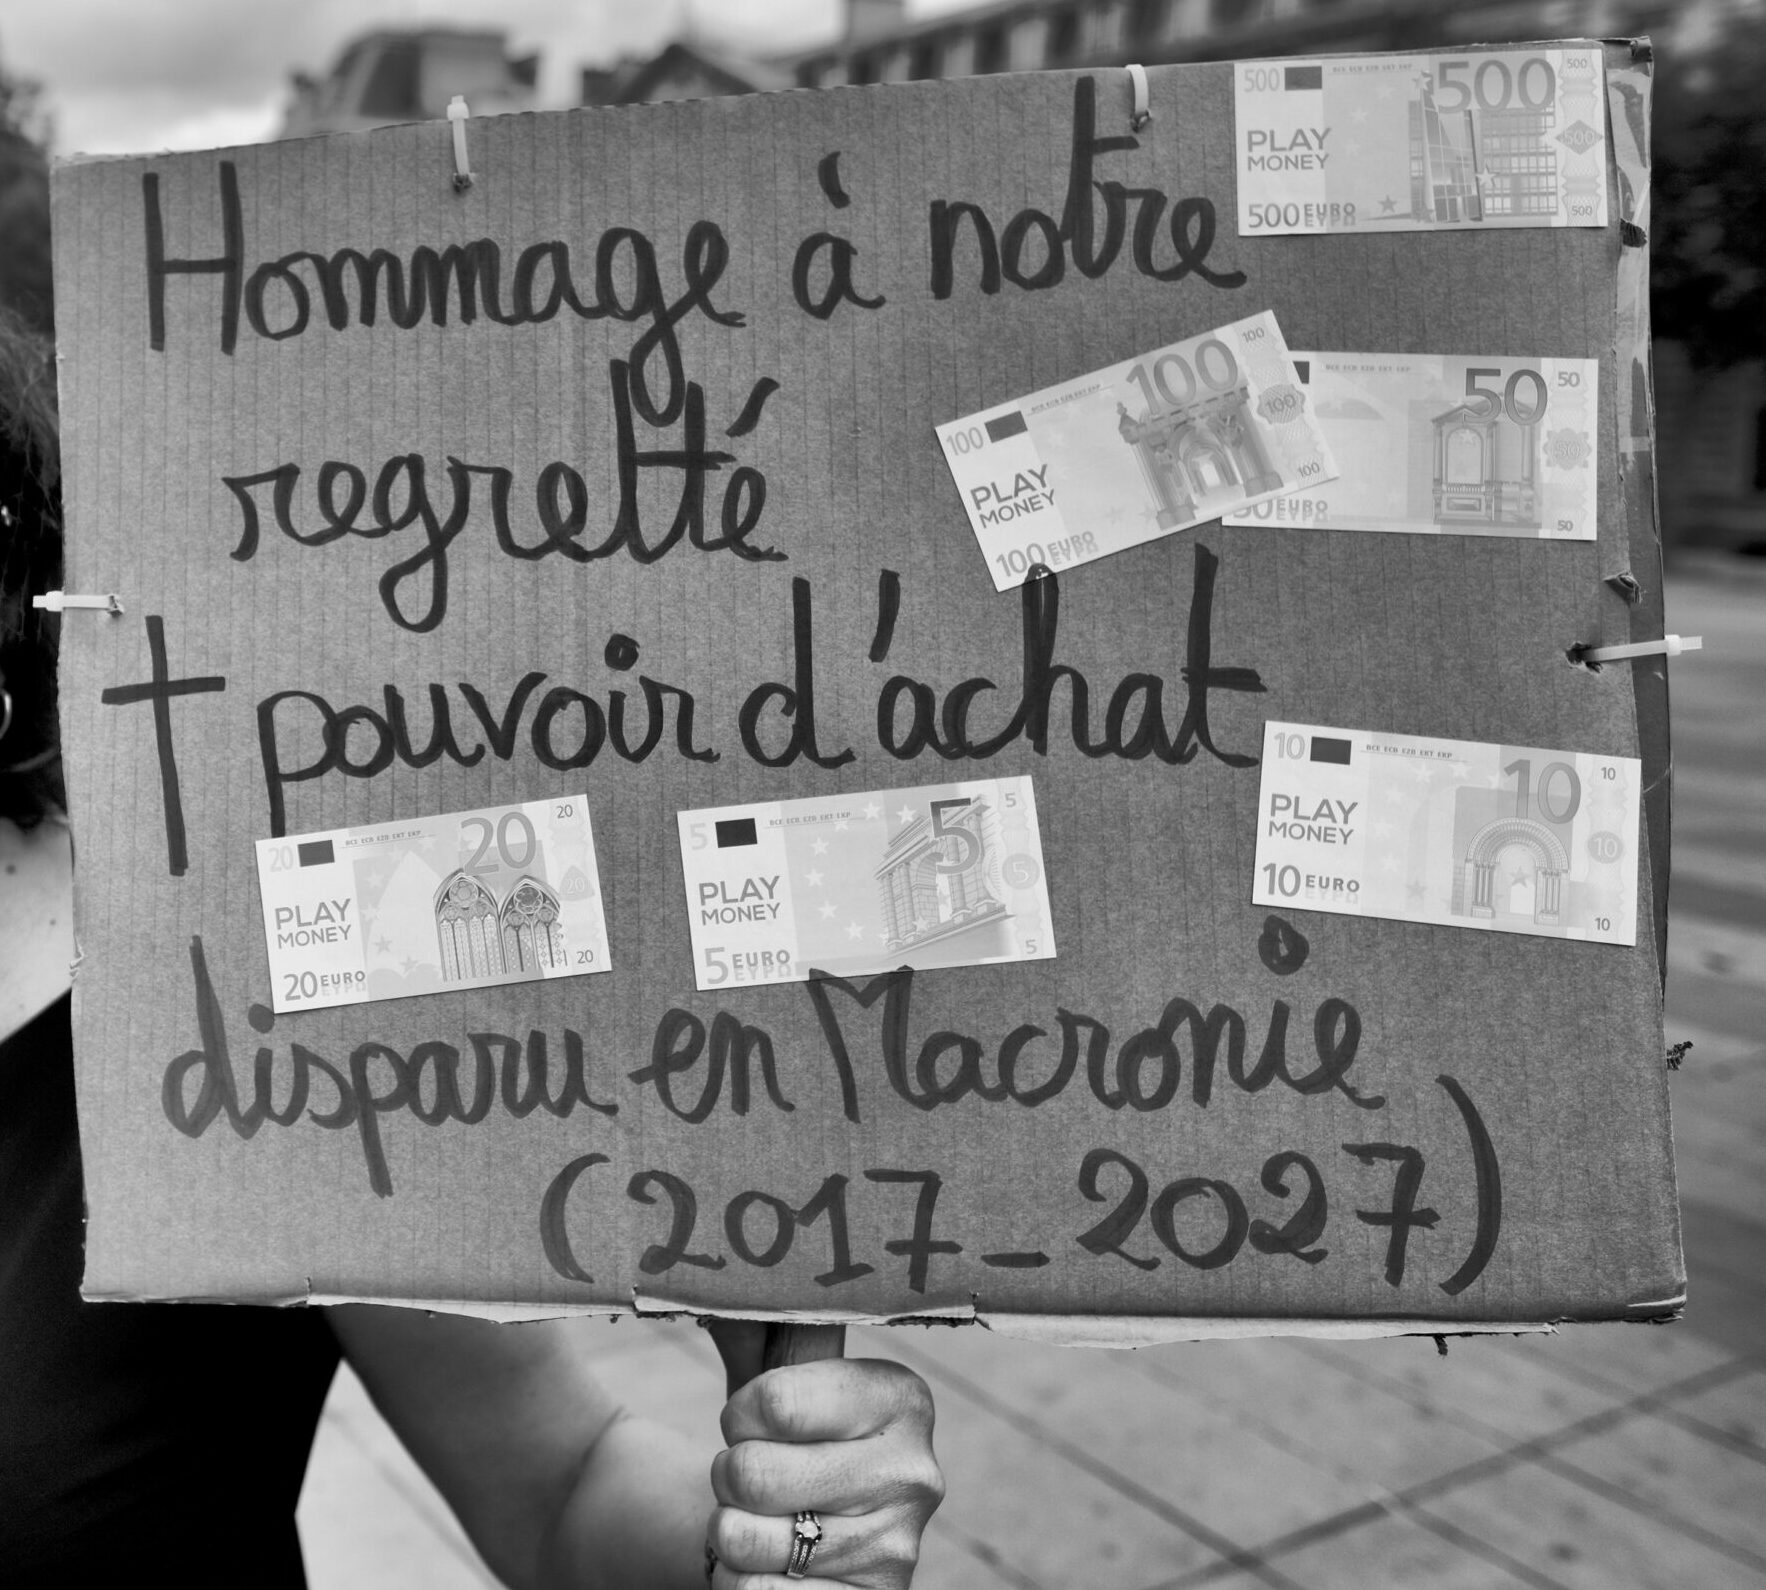 Hommage à notre
regretté
† pouvoir d'achat
disparu en Macronie
(2017_2027)
500 BCE ECB EZB EKT EKP 500 500
PLAY
MONEY
500
500 EURO
ΕΥΡΩ
500
100 BCE ECB EZB EKT EKP 100 100
PLAY
MONEY
100
100 EURO
ΕΥΡΩ
100
BCE ECB EZB EKT EKP 50 50
50
50 EURO
ΕΥΡΩ
50
20 BCE ECB EZB EKT EKP 20 20
PLAY
MONEY
20
20 EURO
ΕΥΡΩ
20
5 BCE ECB EZB EKT EKP 5 5
PLAY
MONEY
5
5 EURO
ΕΥΡΩ
5
10 BCE ECB EZB EKT EKP 10 10
PLAY
MONEY
10
10 EURO
ΕΥΡΩ
10